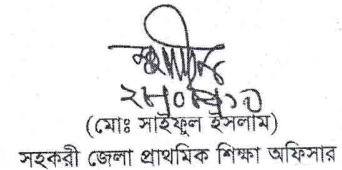 (মোঃ সাইফুল ইসলাম)
সহকরী জেলা প্রাথমিক শিক্ষা অফিসার